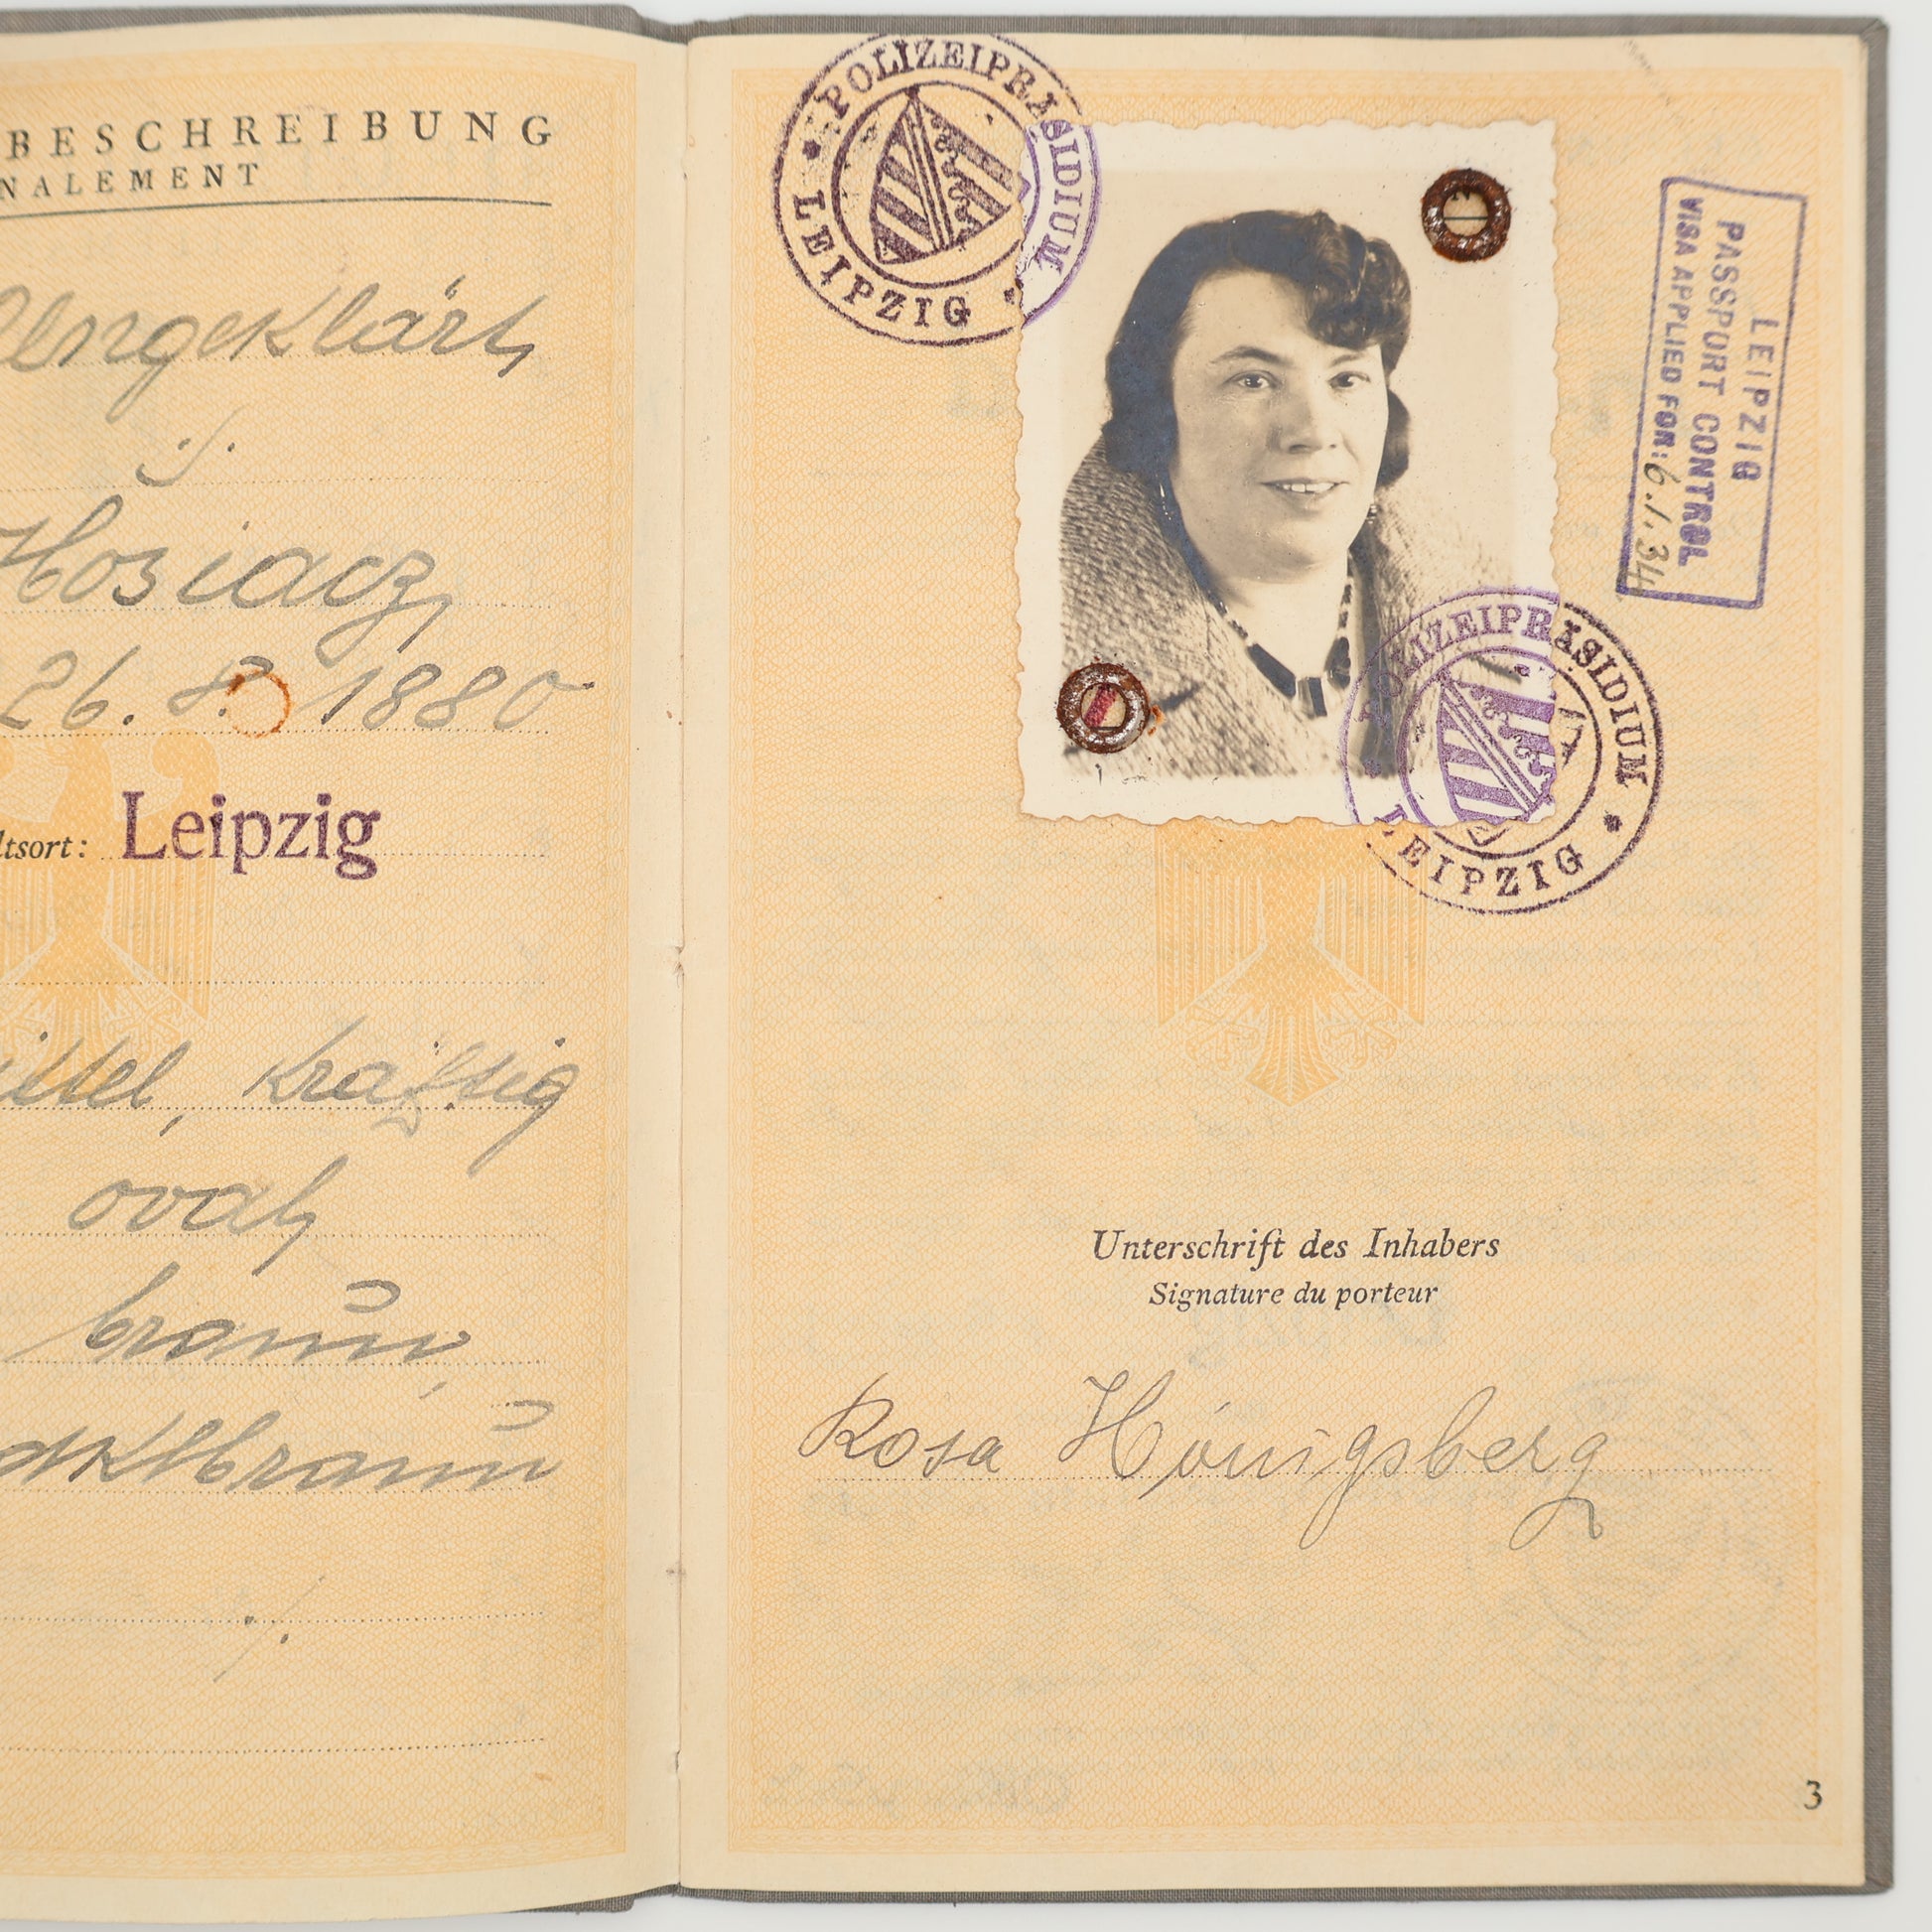 BESCHREIBUNG
NALEMENT
Ungeklärt
./.
Kosiacz
26. 8. 1880
ltsort: Leipzig
ittel, kräftig
oval
braun
dklbraun
./.
POLIZEIPRÄSIDIUM
LEIPZIG
LEIPZIG
PASSPORT CONTROL
VISA APPLIED FOR: 6.1.34
POLIZEIPRÄSIDIUM
LEIPZIG
Unterschrift des Inhabers
Signature du porteur
Rosa Hönigsberg
3